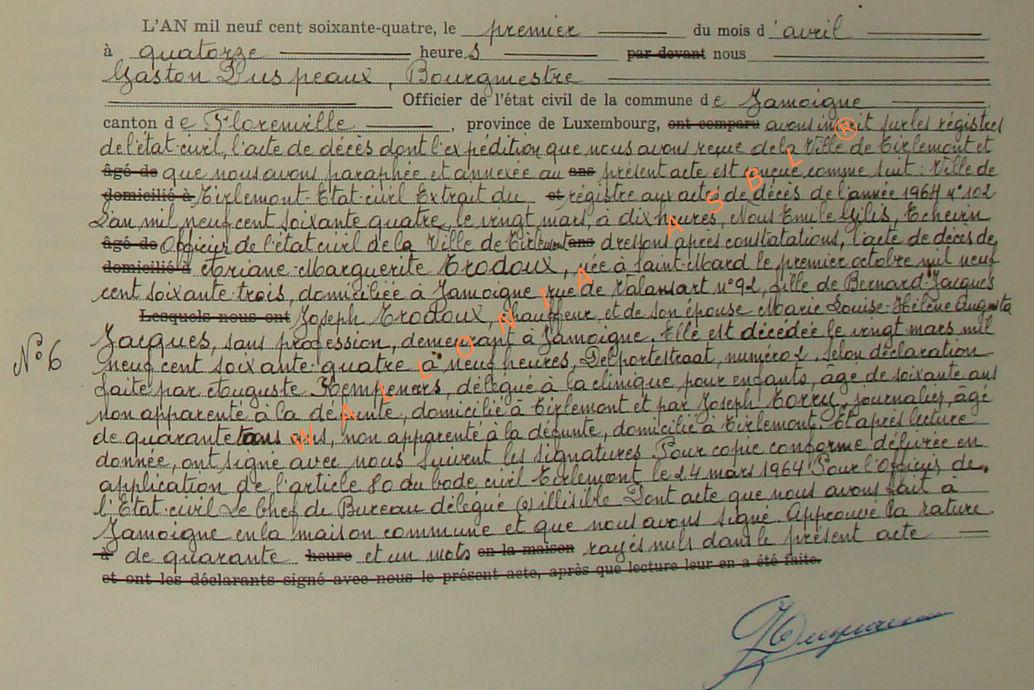 L'AN mil neuf cent soixante-quatre, le premier du mois d'avril
à quatorze heures par devant nous
Gaston Duspeaux, Bourgmestre
Officier de l'état civil de la commune de Jamoigne
canton de Florenville, province de Luxembourg, ont comparu avons inscrit sur les régistres
de l'état-civil, l'acte de décès dont l'expédition que nous avons reçue de la Ville de Tirlemont et
âgé de que nous avons paraphée et annexée au ans présent acte est conçue comme suit: Ville de
domicilié à Tirlemont-Etat-civil Extrait du et régistre aux actes de décès de l'année 1964 n° 102
L'an mil neuf cent soixante quatre, le vingt mars, à dix heures, Nous Emile Gilis, Echevin
âgé de Officier de l'état civil de la Ville de Tirlemont ans dressons après constatations, l'acte de décès de
domicilié à Ariane-Marguerite Trodoux, née à Saint-Mard le premier octobre mil neuf
cent soixante-trois, domiciliée à Jamoigne rue de Valansart n° 92, fille de Bernard-Jacques
Lesquels nous ont Joseph Trodoux, chauffeur, et de son épouse Marie Louise-Hélène Augusta
N° 6
Jacques, sans profession, demeurant à Jamoigne. Elle est décédée le vingt mars mil
neuf cent soixante-quatre à neuf heures, Delportestraat, numéro 2. Selon déclaration
faite par Auguste Kempeners, délégué à la clinique pour enfants, âgé de soixante ans
non apparenté à la défunte, domicilié à Tirlemont et par Joseph journalier, âgé
de quarante ans, non apparenté à la défunte, domicilié à Tirlemont. Et après lecture
donnée, ont signé avec nous Suivent les signatures. Pour copie conforme délivrée en
application de l'article 80 du code civil Tirlemont le 24 mars 1964 Pour l'Officier de
l'Etat-civil Le Chef de Bureau délégué (s) illisible. Dont acte que nous avons fait à
Jamoigne en la maison commune et que nous avons signé. Approuvé la rature
à de quarante heure et un mots en la maison rayés nuls dans le présent acte
et ont les déclarants signé avec nous le présent acte, après que lecture leur en a été faite.
WALLONIA ASBL ®